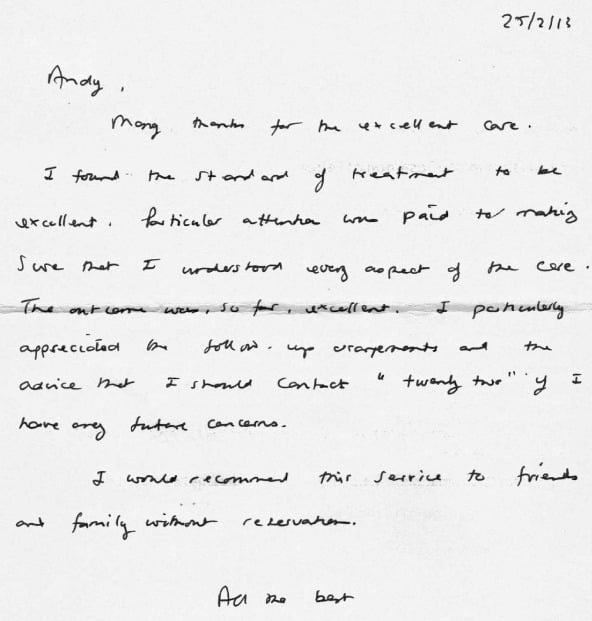 25/2/13
Andy,
Many thanks for the excellent care.
I found the standard of treatment to be
excellent. Particular attention was paid to making
sure that I understood every aspect of the care.
The outcome was, so far, excellent. I particularly
appreciated the follow-up arangements and the
advice that I should contact "twenty two" if I
have any future concerns.
I would recommend this service to friends
and family without reservation.
All the best